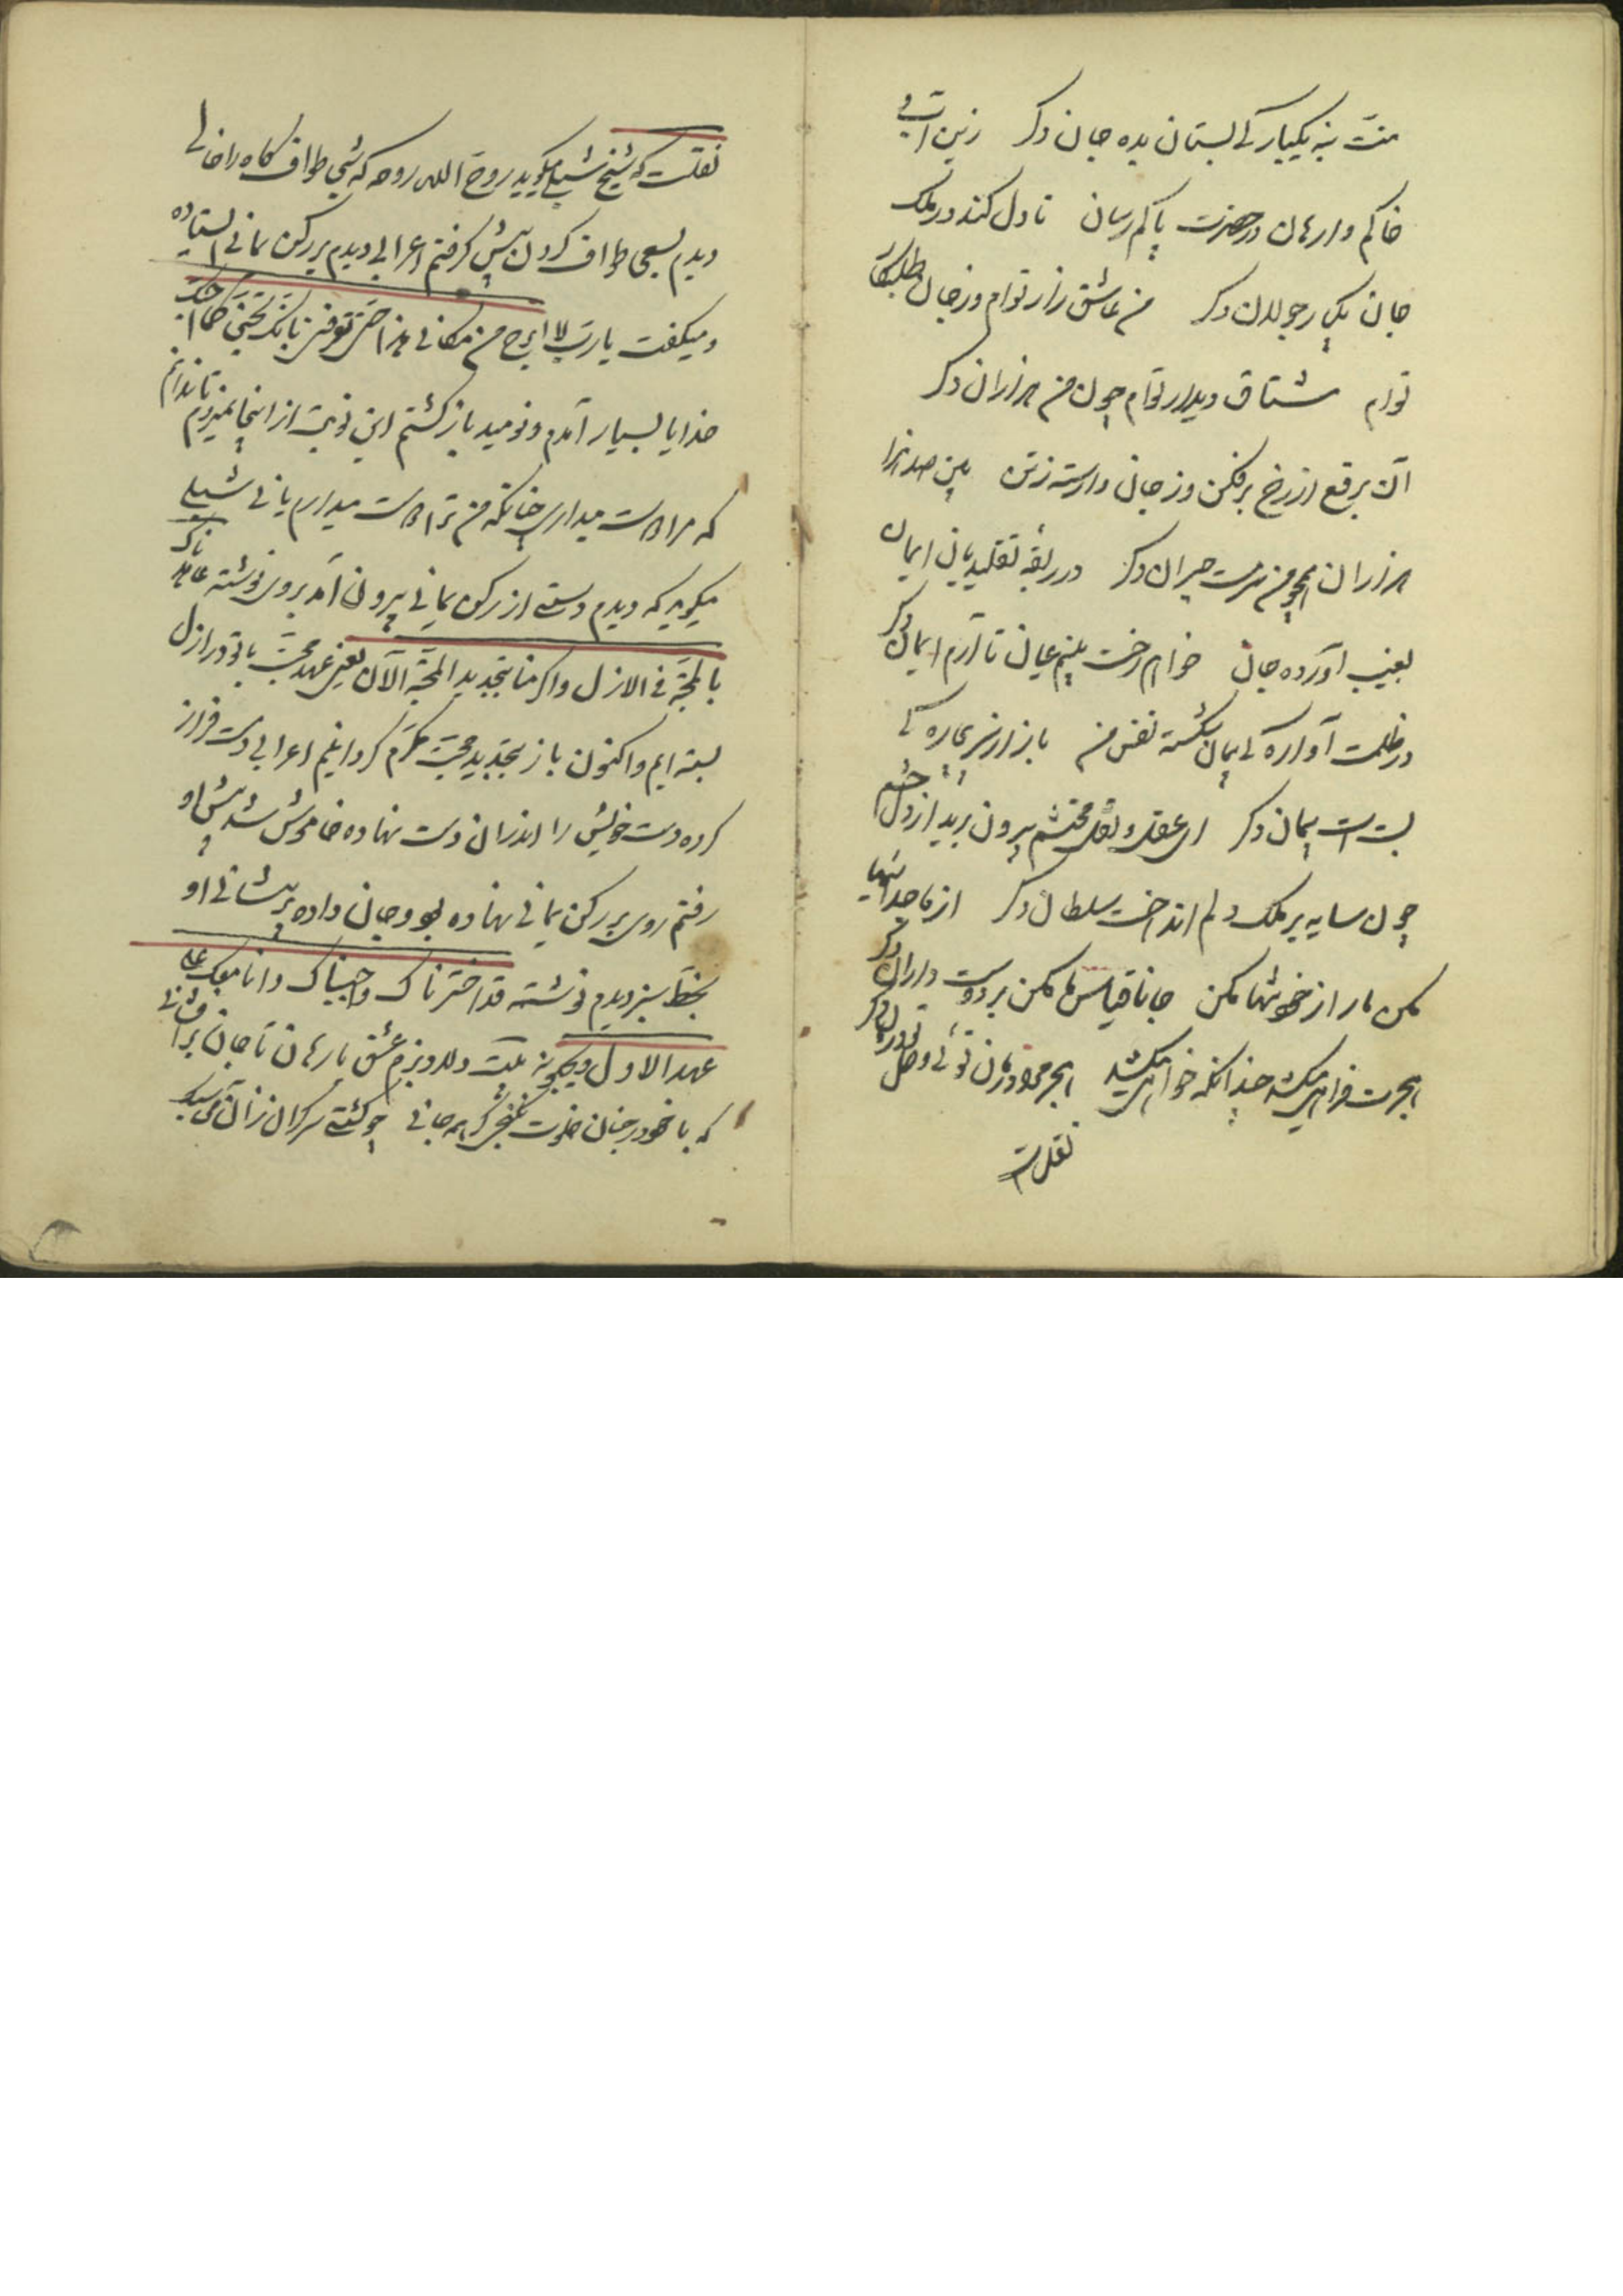 منت بنه یکبار کی بستان بده جان دکر زین آب و
خاکم وارهان در حضرت پاکم رسان تا دل کند در ملک
جان یکبار جولان دکر من عاشق زار توام وز جان طلبکار
توام مشتاق دیدار توام چون من هزاران دکر
آن برقع از رخ برفکن وز جان وارسته ز تن بین صد هزارا
هزاران همچو من سرمست حیران دکر در ربقهٔ تقلید یان ایمان
بغیب آورده جان خواهم رخت بینم عیان تا آرم ایمان دکر
در ظلمت آواره کی پیمان شکسته نفس من باز از سر بیچاره کی
بست است پیمان دکر ای عقل و نقل محتشم بیرون برید از دل حشم
چون سایه بر ملک دلم انداخت سلطان دکر از ما جدائیها
مکن مار از خود تنها مکن جانا قیاس ما مکن بر دوست داران دکر
هجرت فراهم میکشد چندانکه خواهم میکشد هجر مرا درمان توئی وصل تو درمان دکر
نقل است
نقلست که شیخ شبلی میکوید روح الله روحه که شبی طواف کاه را خالی
دیدم بسعی طواف کردن پیش کرفتم اعرابی دیدم بر رکن یمانی ایستاده
و میکفت یا رب لا ابرح من مکانی هذا حتی توقن بانک تحبنی کما احبک
خدایا بسیار آمدم و نومید باز کشتم این نوبت از اینجا نمیروم تا ندانم
که مرا دوست میداری چنانکه من ترا دوست میدارم یا نی شبلی
میکوید که دیدم دستی از رکن یمانی بیرون آمد بروی نوشته عاهدناک
بالمحبة فی الازل واکرمنا بتجدید المحبة الآن یعنی عهد محبت با تو در ازل
بسته ایم و اکنون باز بتجدید محبت مکرم کردانیم اعرابی دست فراز
کرده دست خویش را اندران دست نهاده خاموش شد پیش او
رفتم روی بر رکن یمانی نهاده بود و جان داده بر پیشانی او
بخط سبز دیدم نوشته قد اخترناک واجبناک وانا معک علی
عهد الاول
که با خود در جنان خلوت نکنجد کر همه جانی